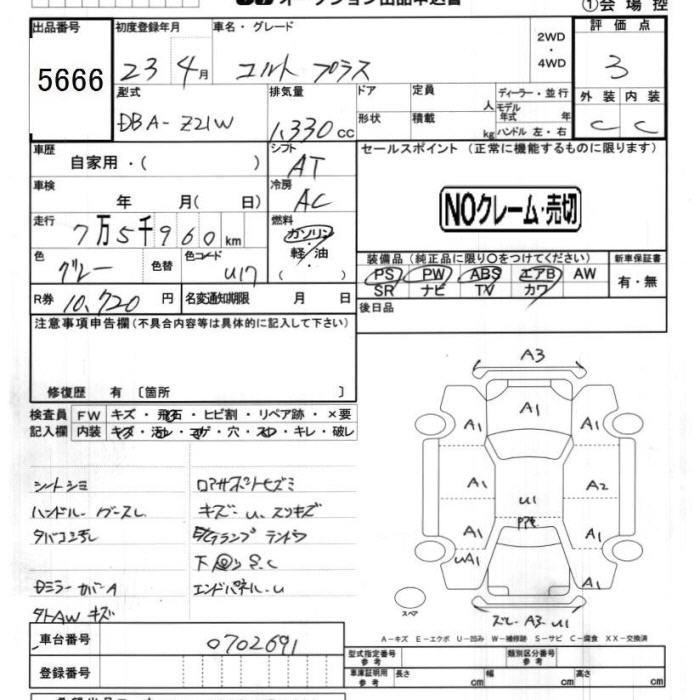 オークション出品申込書
①会場控
出品番号
5666
初度登録年月
車名・グレード
23 4月
コルト プラス
2WD
・
4WD
評価点
3
型式
DBA-Z21W
排気量
1,330cc
ドア
定員
人
ディーラー・並行
モデル
年式 年
形状
積載
kg
ハンドル 左・右
外装
内装
C
C
車歴
自家用・( )
シフト
AT
セールスポイント (正常に機能するものに限ります)
車検
年 月( 日)
冷房
AC
NOクレーム・売切
走行
7万5千960km
燃料
ガソリン
・
軽 油
( )
色
グレー
色替
色コード
U17
装備品 (純正品に限り○をつけてください)
PS PW ABS エアB AW
SR ナビ TV カワ
新車保証書
有・無
R券
10,720円
名変通知期限
月 日
後日品
注意事項申告欄(不具合内容等は具体的に記入して下さい)
修復歴 有 〔箇所 〕
検査員
記入欄
FW
キズ・飛石・ヒビ割・リペア跡・×要
内装
キズ・汚レ・コゲ・穴・スレ・キレ・破レ
シートシミ
ハンドル
Dミラーカバー A
タトAW キズ
キズ・U、スリキズ
下回りS.C
エンドパネル・U
A3
A1
A1
A1
A1
A2
U1
A1
A1
UA1
A1
A3・U1
スペア
A-キズ E-エクボ U-凹み W-補修跡 S-サビ C-腐食 XX-交換済
車台番号
0702691
登録番号
型式指定番号
参考
類別区分番号
参考
車庫証明用
参考
長さ cm
幅 cm
高さ cm